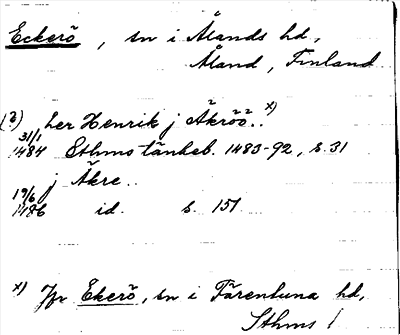 Eckerö, sn i Ålands hd,
Åland, Finland
(?) her Henrik j Äkröö.. x)
31/1 1484 Sthms tänkeb. 1483-92, s. 31
j Äkre..
19/6 1486 id. s. 151
x) Jfr Ekerö, sn i Färentuna hd,
Sthms l